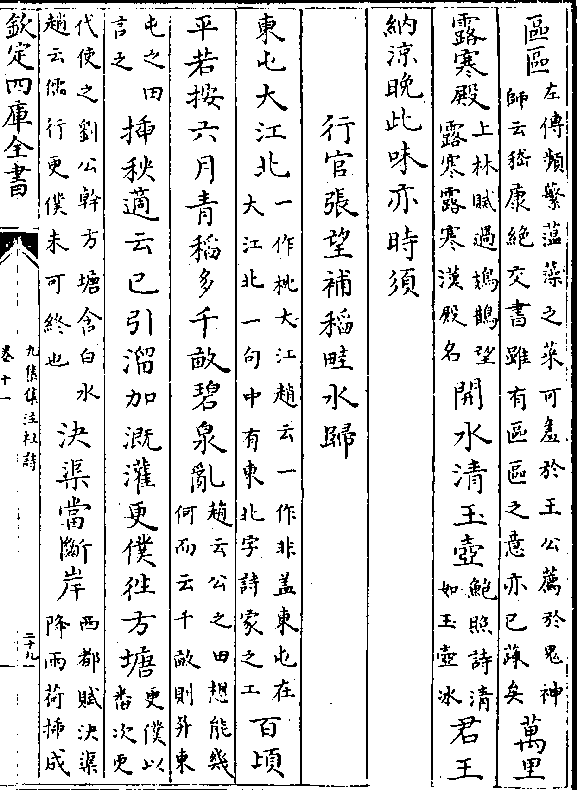 區區左傳頻繁薀藻之菜可羞於王公薦於鬼神師云嵇康絶交書雖有區區之意亦已疎矣萬里
露寒殿上林賦過鳷鵲望露寒露寒漢殿名開水清玉壺鮑照詩清如玉壺冰君王
納涼晚此味亦時須
行官張望補稻畦水歸
東屯大江北一作枕大江趙云一作非盖東屯在大江北一句中有東北字詩家之工百頃
平若按六月青稻多千畝碧泉亂趙云公之田想能幾何而云千畝則并東
屯之田言之插秧適云已引溜加溉灌更僕往方塘更僕以番次更
代使之劉公幹方塘含白水趙云儒行更僕未可終也決渠當斷岸西都賦決渠降雨荷插成
欽定四庫全書
九集集注杜詩
卷十一
二十九